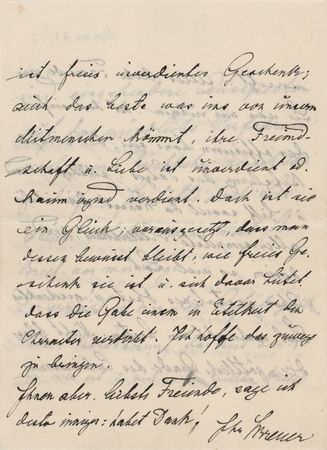 ist freies unverdientes Geschenk;
auch das beste was uns von unsern
Mitmenschen kommt, ihre Freund-
schaft u. Liebe ist unverdient od.
kaum verdient. Doch ist sie
ein Glück; vorausgesetzt, dass man
dessen bewusst bleibt, wie freies Ge-
schenk sie ist u. sich davor hütet
dass die Gabe einem in Eitelkeit den
Charakter verdirbt. Ich hoffe das zuwege
zu bringen.
Ihnen aber, liebste Freunde, sage ich
desto inniger: habet Dank!
Ihr Breuer